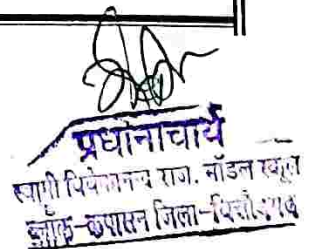 प्रधानाचार्य
स्वामी विवेकानन्द राज. मॉडल स्कूल
ब्लॉक-कपासन जिला-चित्तौड़गढ़